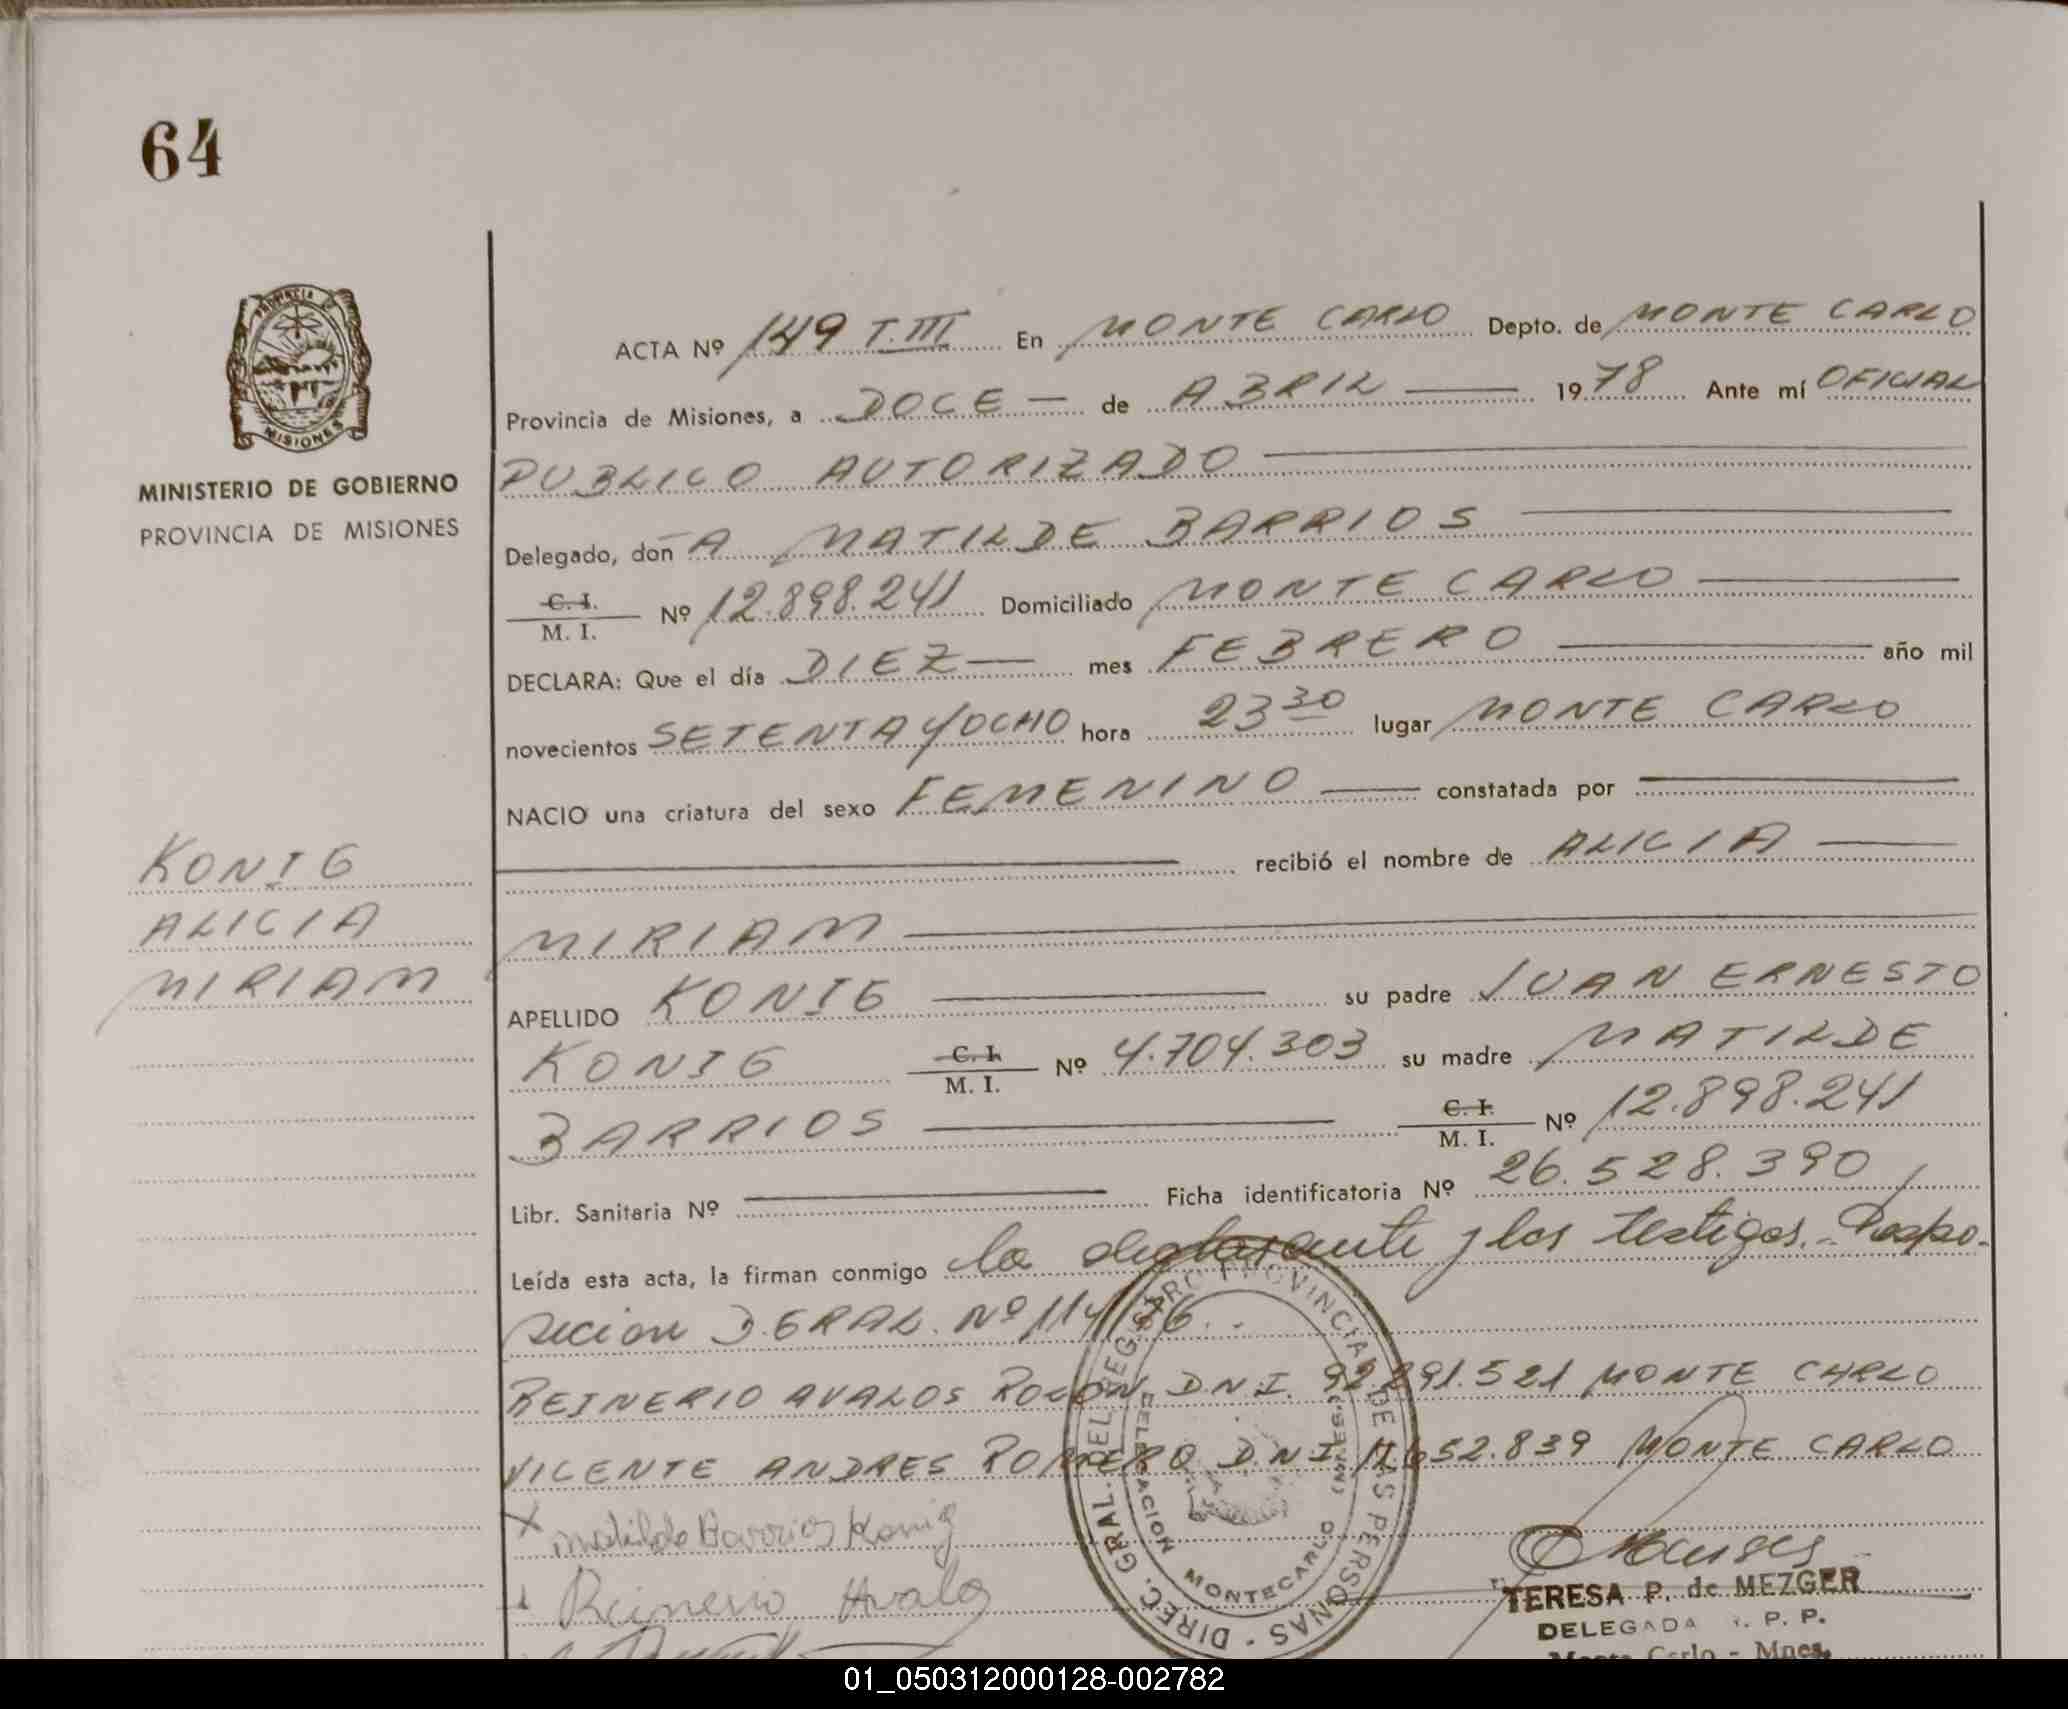 64
PROVINCIA DE
MISIONES
MINISTERIO DE GOBIERNO
PROVINCIA DE MISIONES
KONIG
ALICIA
MIRIAM
ACTA Nº 149 T.III En MONTE CARLO Depto. de MONTE CARLO
Provincia de Misiones, a DOCE — de ABRIL — 1978 Ante mí OFICIAL
PUBLICO AUTORIZADO
Delegado, don A MATILDE BARRIOS
C. I.
M. I. Nº 12.898.241 Domiciliado MONTE CARLO
DECLARA: Que el día DIEZ — mes FEBRERO — año mil
novecientos SETENTA Y OCHO hora 23 30 lugar MONTE CARLO
NACIO una criatura del sexo FEMENINO — constatada por —
— recibió el nombre de ALICIA —
MIRIAM —
APELLIDO KONIG — su padre JUAN ERNESTO
KONIG C. I. M. I. Nº 4.704.303 su madre MATILDE
BARRIOS — C. I. M. I. Nº 12.898.241
Libr. Sanitaria Nº — Ficha identificatoria Nº 26.528.390
Leída esta acta, la firman conmigo la declarante y los testigos.
D. GRAL. Nº 114/76.
REINERIO AVALOS ROLON D.N.I. 92.291.521 MONTE CARLO
VICENTE ANDRES ROMERO D.N.I. 11.652.839 MONTE CARLO
X Matilde Barrios Konig
Reinerio Avalo
DIREC. GRAL. DEL REGISTRO PROVINCIAL DE LAS PERSONAS
DELEGACION MONTECARLO (MNES.)
TERESA P. de MEZGER
DELEGADA R. P. P.
Monte Carlo - Mnes.
01_050312000128-002782